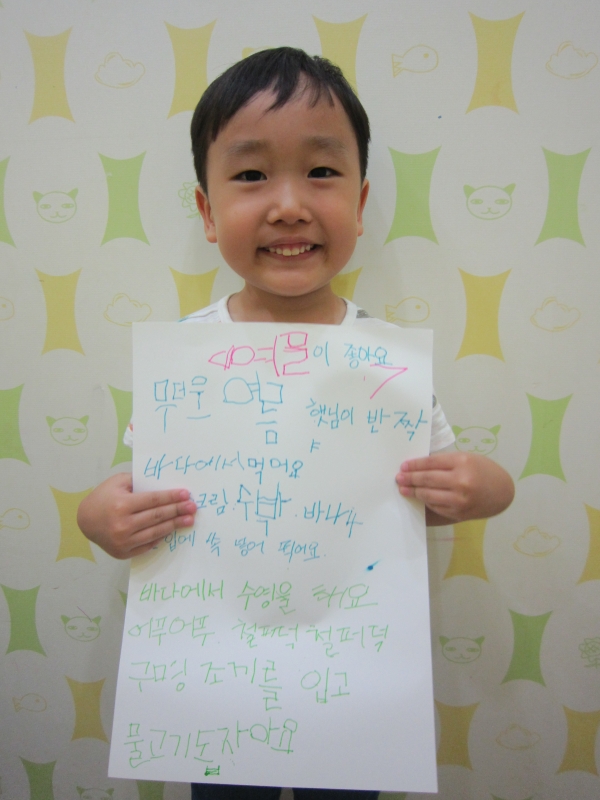 <여름이 좋아요>
무더운 여름 햇님이 반짝
바다에서 먹어요
크림. 수박. 바나나
입에 쏙 넣어
바다에서 수영을 해요
어푸어푸. 철퍼덕 철퍼덕
구명 조끼를 입고
물고기도 잡아요